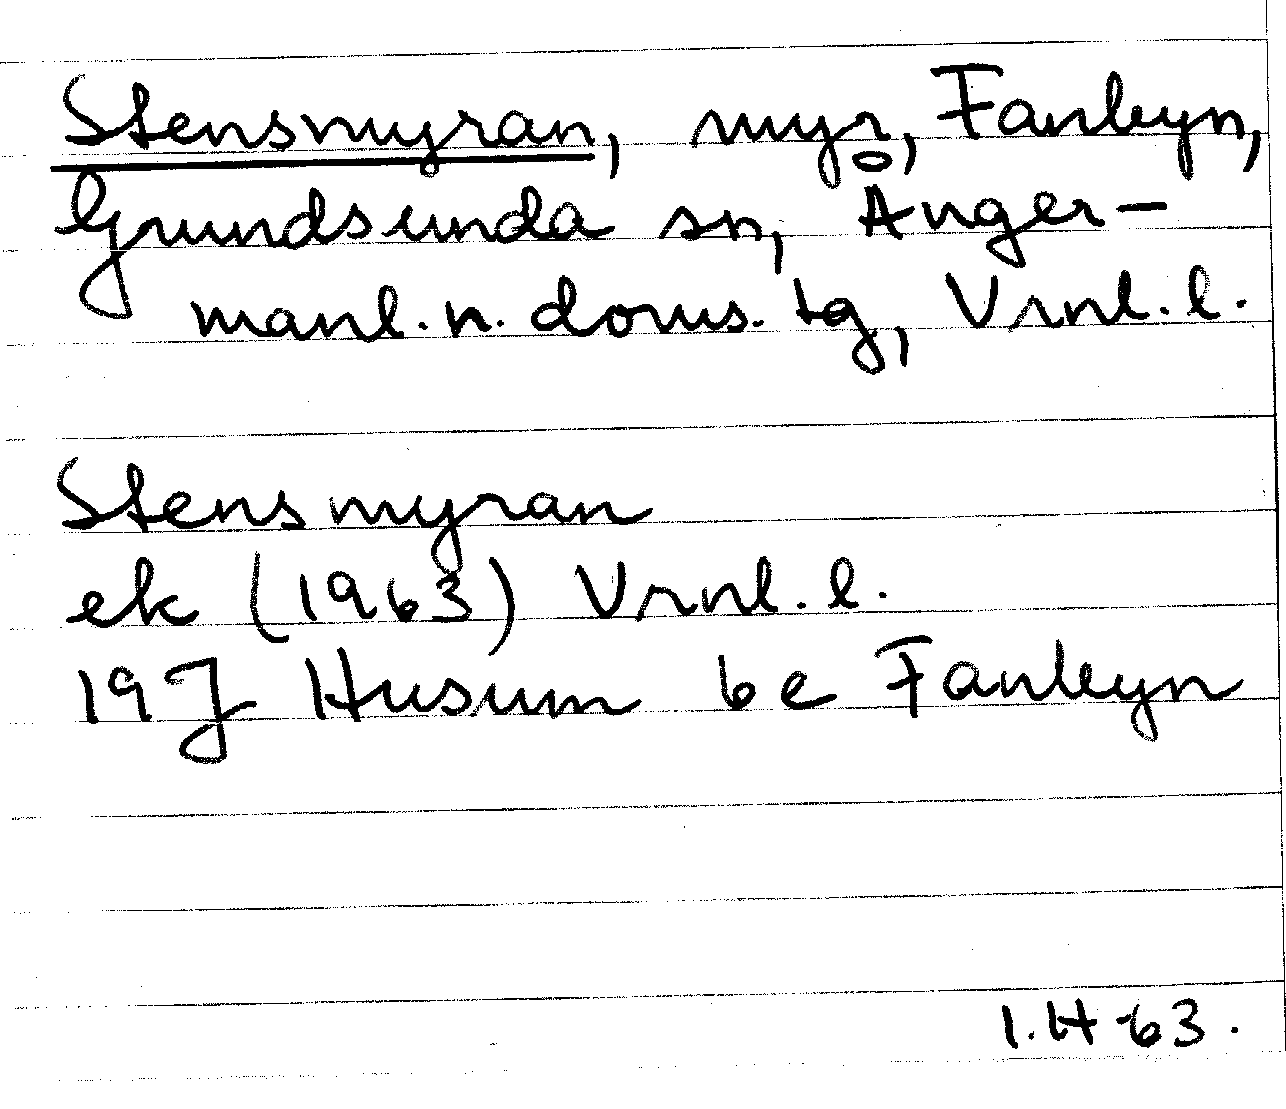 Stensmyran, myr, Fanbyn,
Grundsunda sn, Ånger-
manl. n. doms. tg, Vrnl. l.
Stensmyran
ek (1963) Vrnl. l.
19J Husum 6e Fanbyn
I.H-63.